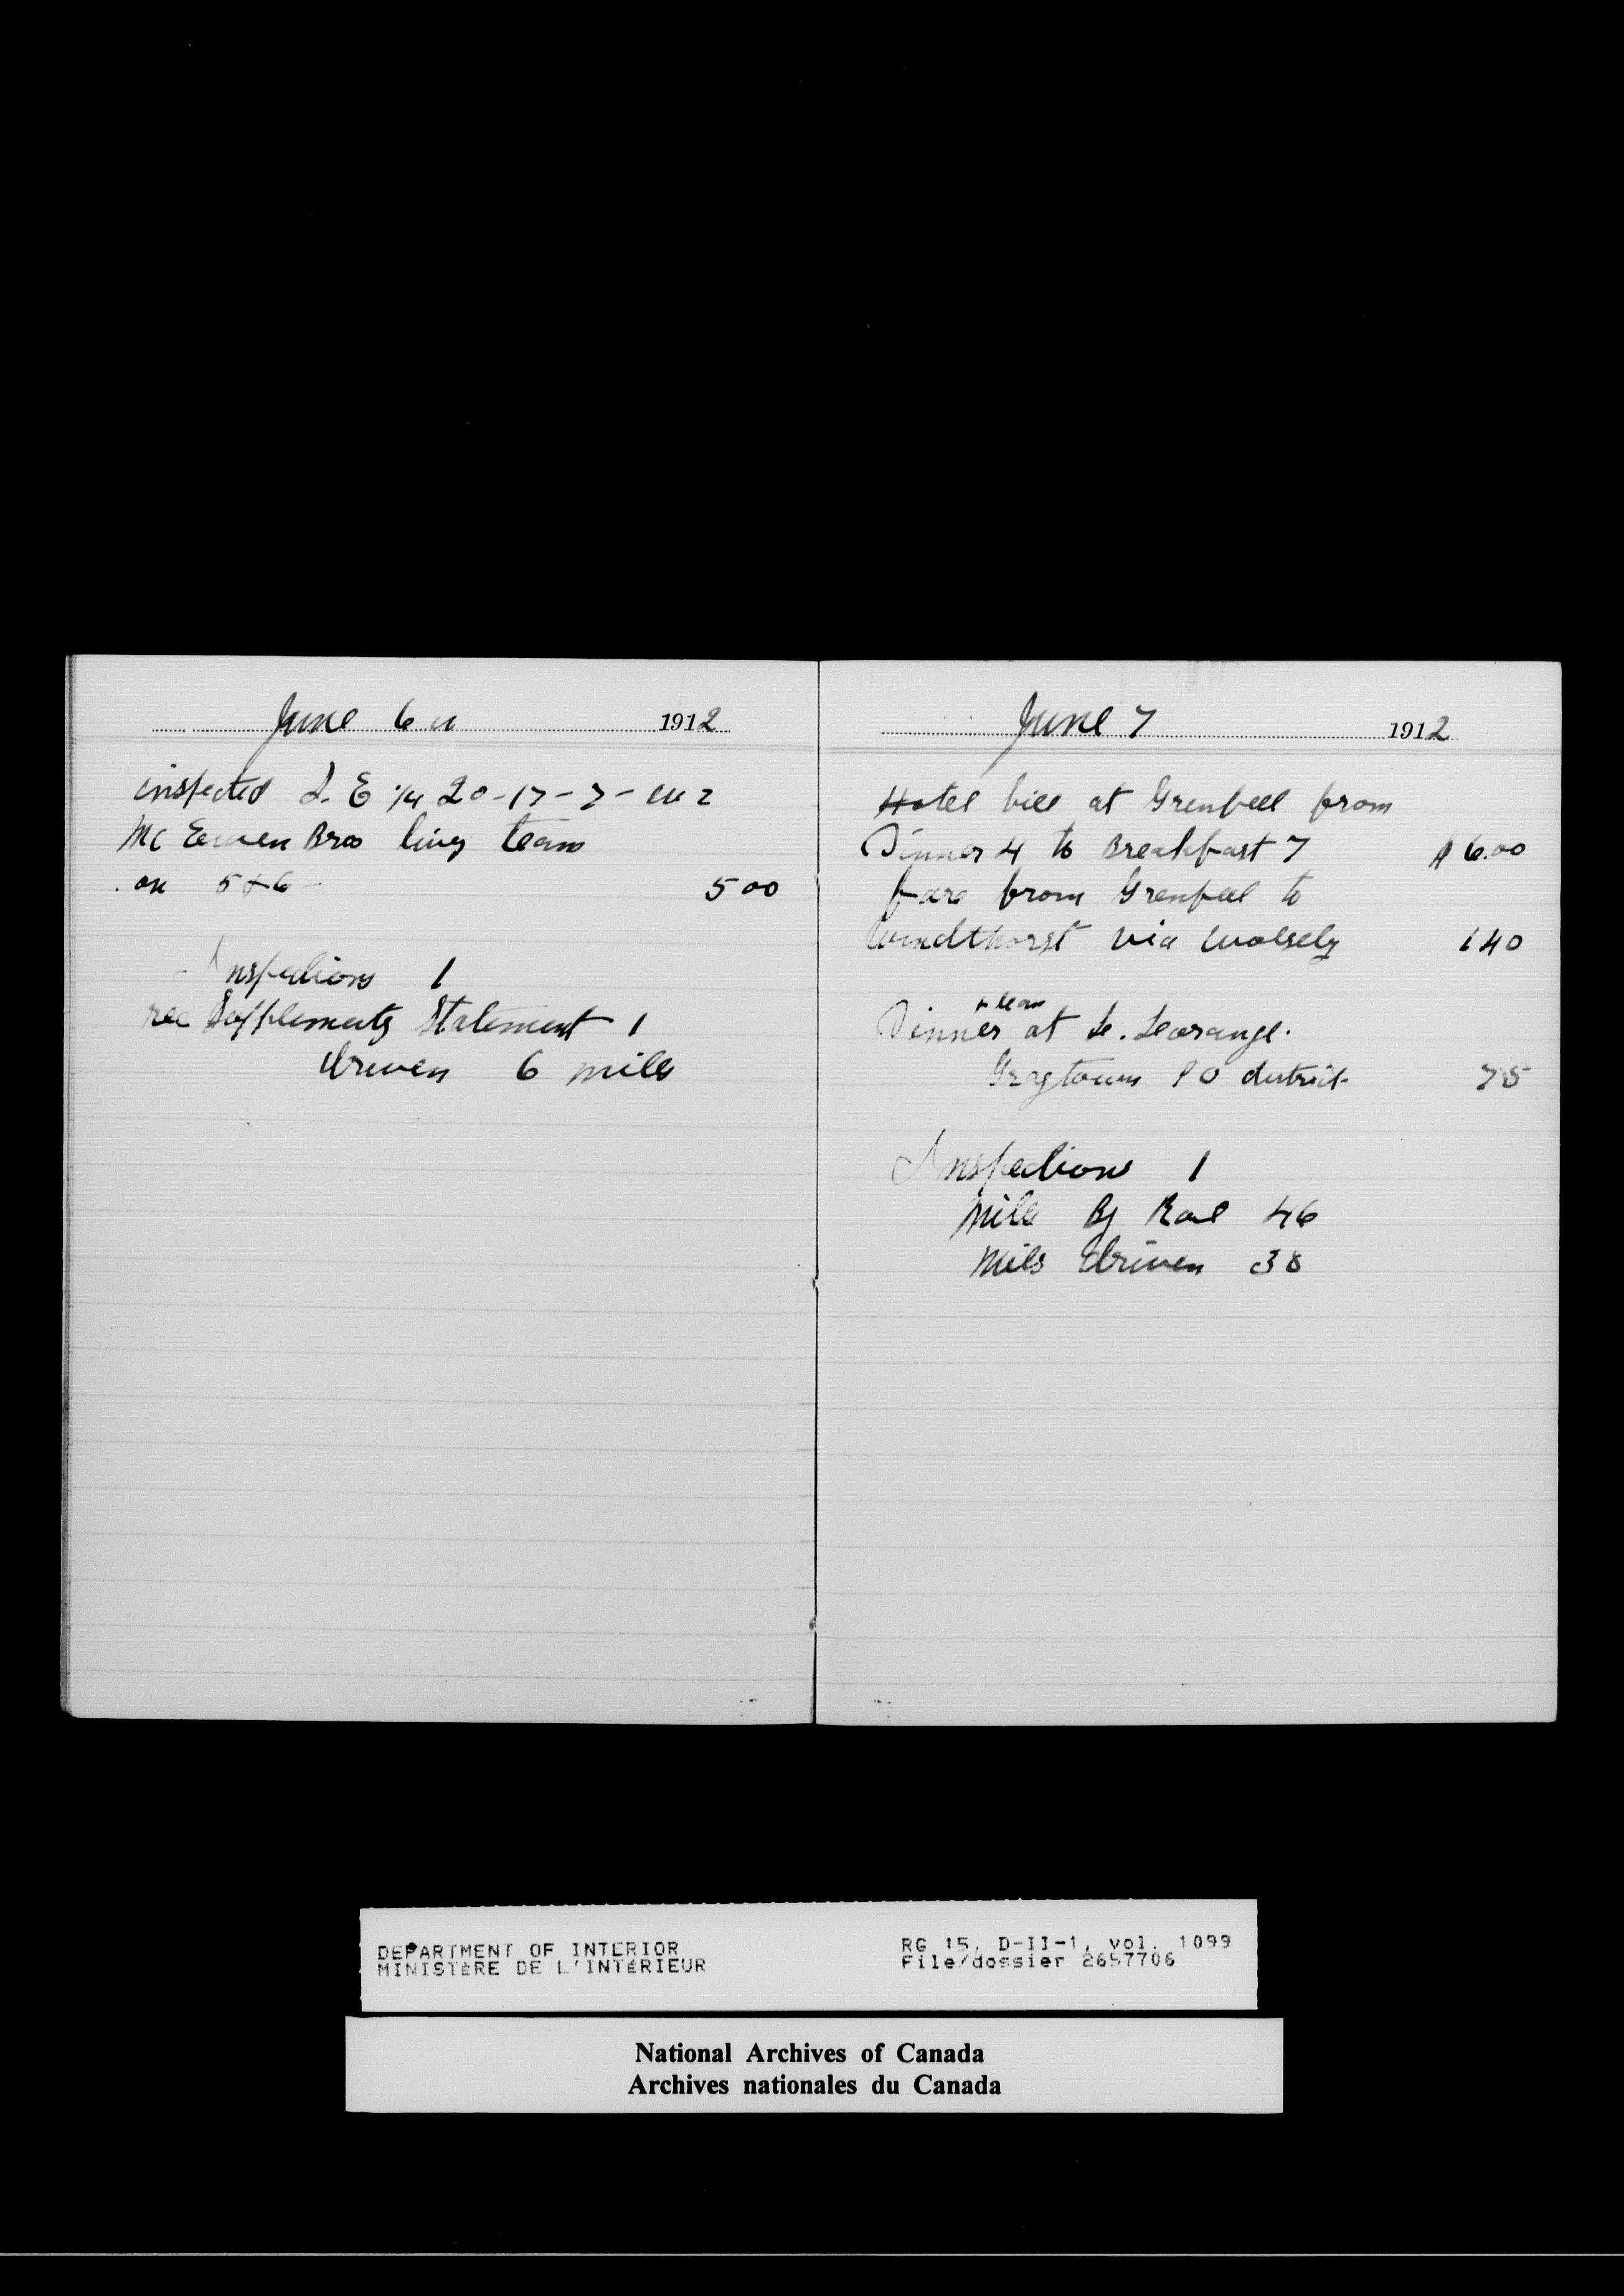 June 6th 1912
inspected S. E 1/4 20-17-7-W 2
McEewen Bros livy team
on 5 & 6 - 5 00
Inspections 1
rec Supplementy Statement 1
driven 6 mills
June 7 1912
Hotel bill at Grenfell from
Dinner 4 to Breakfast 7 $ 6.00
fare from Grenfell to
Windthorst via Wolsely 1 40
+ team
Dinner at
Graytown P O district 75
Inspections 1
Mills By Rail 46
Mils driven 38
DEPARTMENT OF INTERIOR
MINISTÈRE DE L'INTÉRIEUR
RG 15, D-II-1, vol. 1099
File/dossier 2657706
National Archives of Canada
Archives nationales du Canada